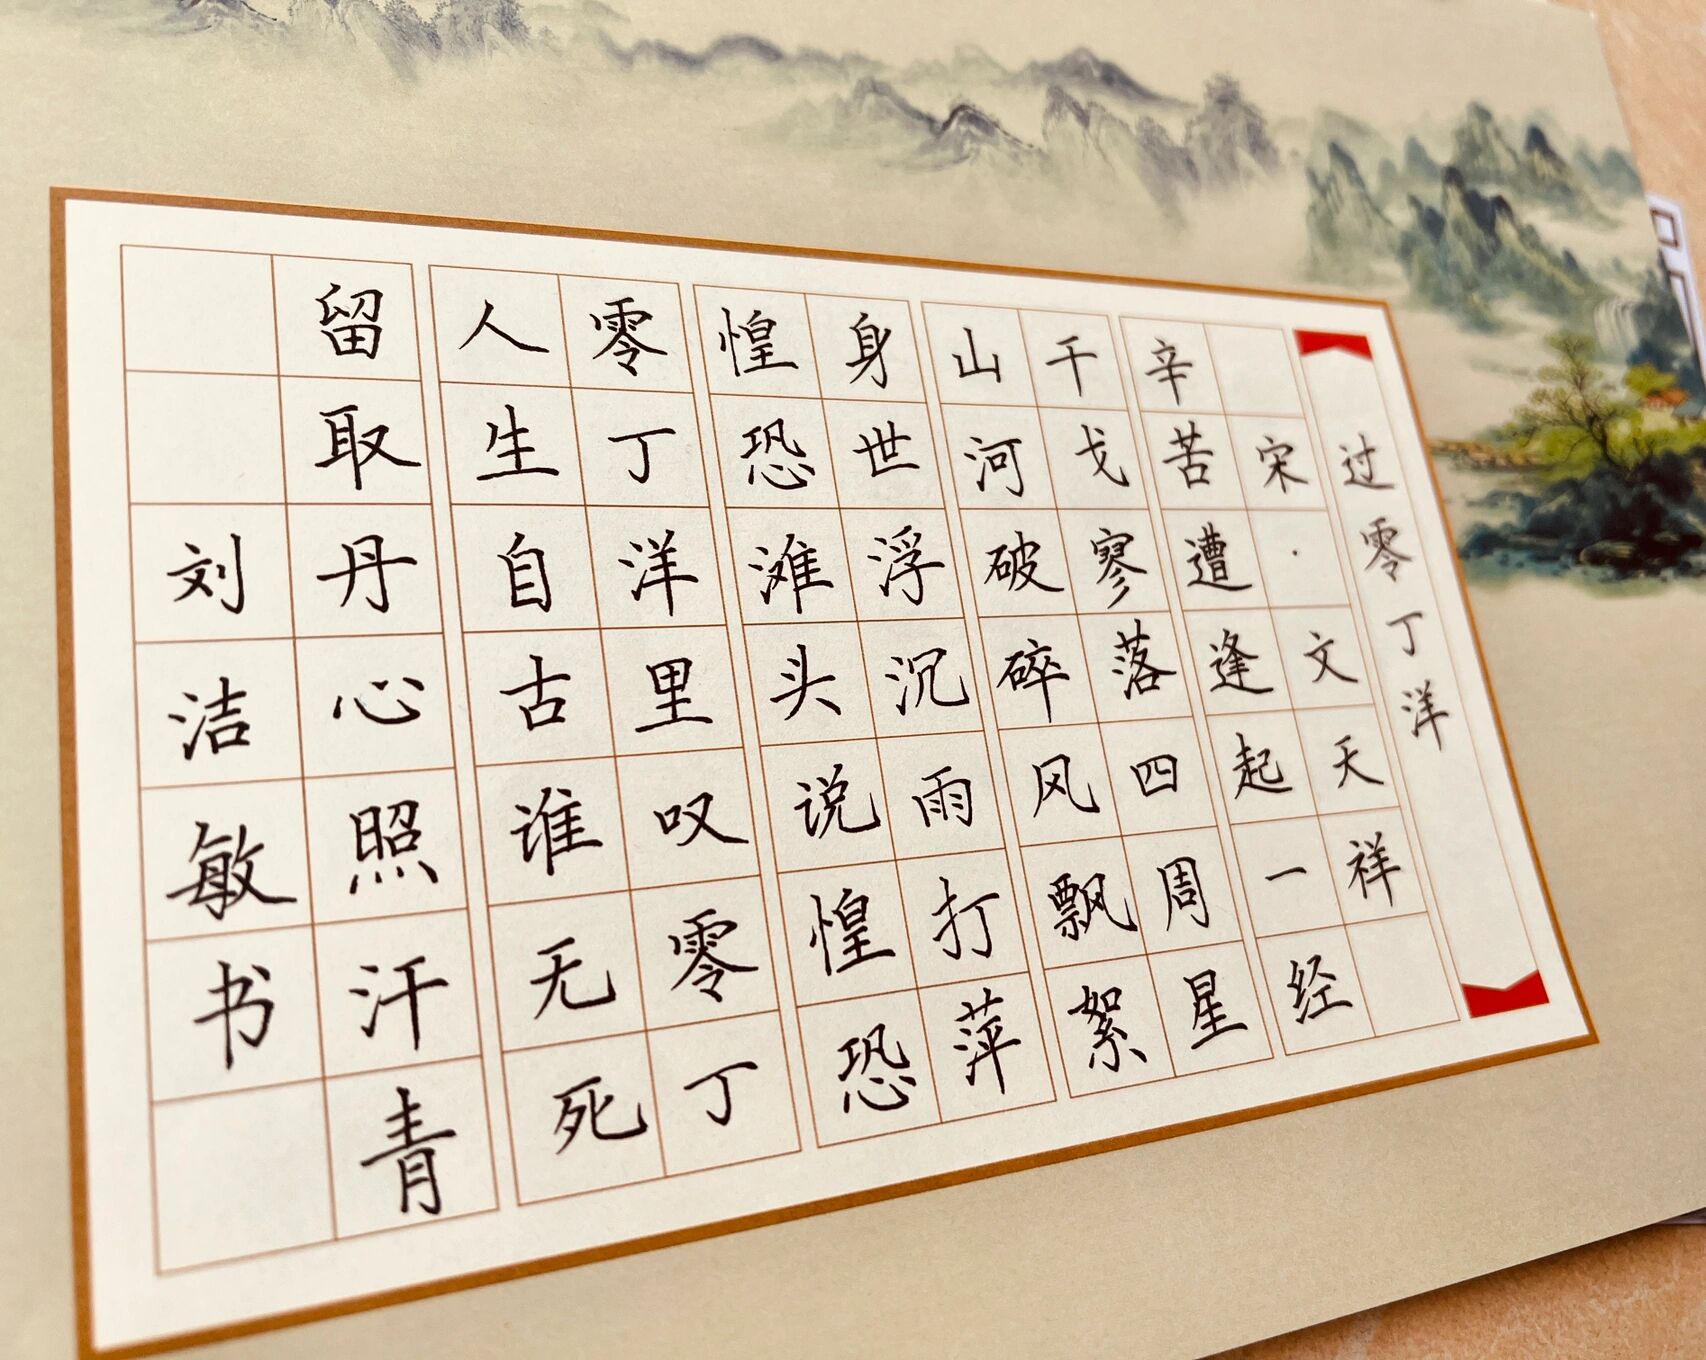 过零丁洋
宋·文天祥
辛苦遭逢起一经
干戈寥落四周星
山河破碎风飘絮
身世浮沉雨打萍
惶恐滩头说惶恐
零丁洋里叹零丁
人生自古谁无死
留取丹心照汗青
刘洁敏书